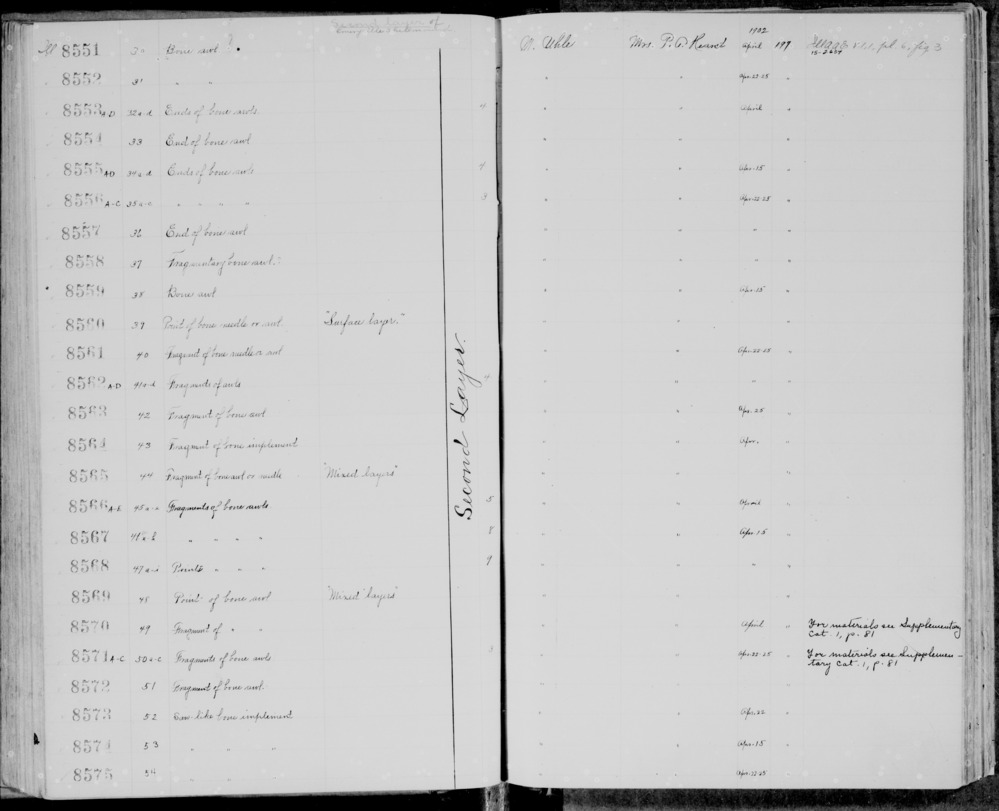 1902
8551 30 Bone awl M. Uhle Mrs. P. A. Hearst April 197
8552 31 " " " " Apr. 23-25 "
8553 A-D 32a-d Ends of bone awls 4 " " April "
8554 33 End of bone awl " " "
8555 A-D 34a-d Ends of bone awls 4 " " Apr. 25 "
8556 A-C 35a-c " " " " 3 " " Apr. 22-25 "
8557 36 End of bone awl " " " "
8558 37 Fragmentary bone awl. " " " "
8559 38 Bone awl " " Apr. 25 "
8560 39 Point of bone needle or awl. "Surface layer." " " "
8561 40 Fragment of bone needle or awl " " Apr. 22-25 "
8562 A-D 41a-d Fragments of awls 4 " " " "
8563 42 Fragment of bone awl " " Apr. 25 "
8564 43 Fragment of bone implement " " Apr. "
8565 44 Fragment of bone awl or needle "Mixed layers" " " "
8566 A-E 45a-e Fragments of bone awls 5 " " April "
8567 " " " " 8 " " Apr. 15 "
8568 47a-i Points " " " 9 " " " "
8569 48 Point of bone awl "Mixed layers" " " "
8570 49 Fragment of " " " " April " For materials see Supplementary
Cat. 1, p. 81
8571 A-C 50a-c Fragments of bone awls 3 " " Apr. 22-25 " For materials see Supplemen-
tary Cat. 1, p. 81
8572 51 Fragment of bone awl. " " "
8573 52 Awl-like bone implement " " Apr. 22 "
8574 53 " " " " " Apr. 15 "
8575 54 " " Apr. 22-25 "
Second Layer.